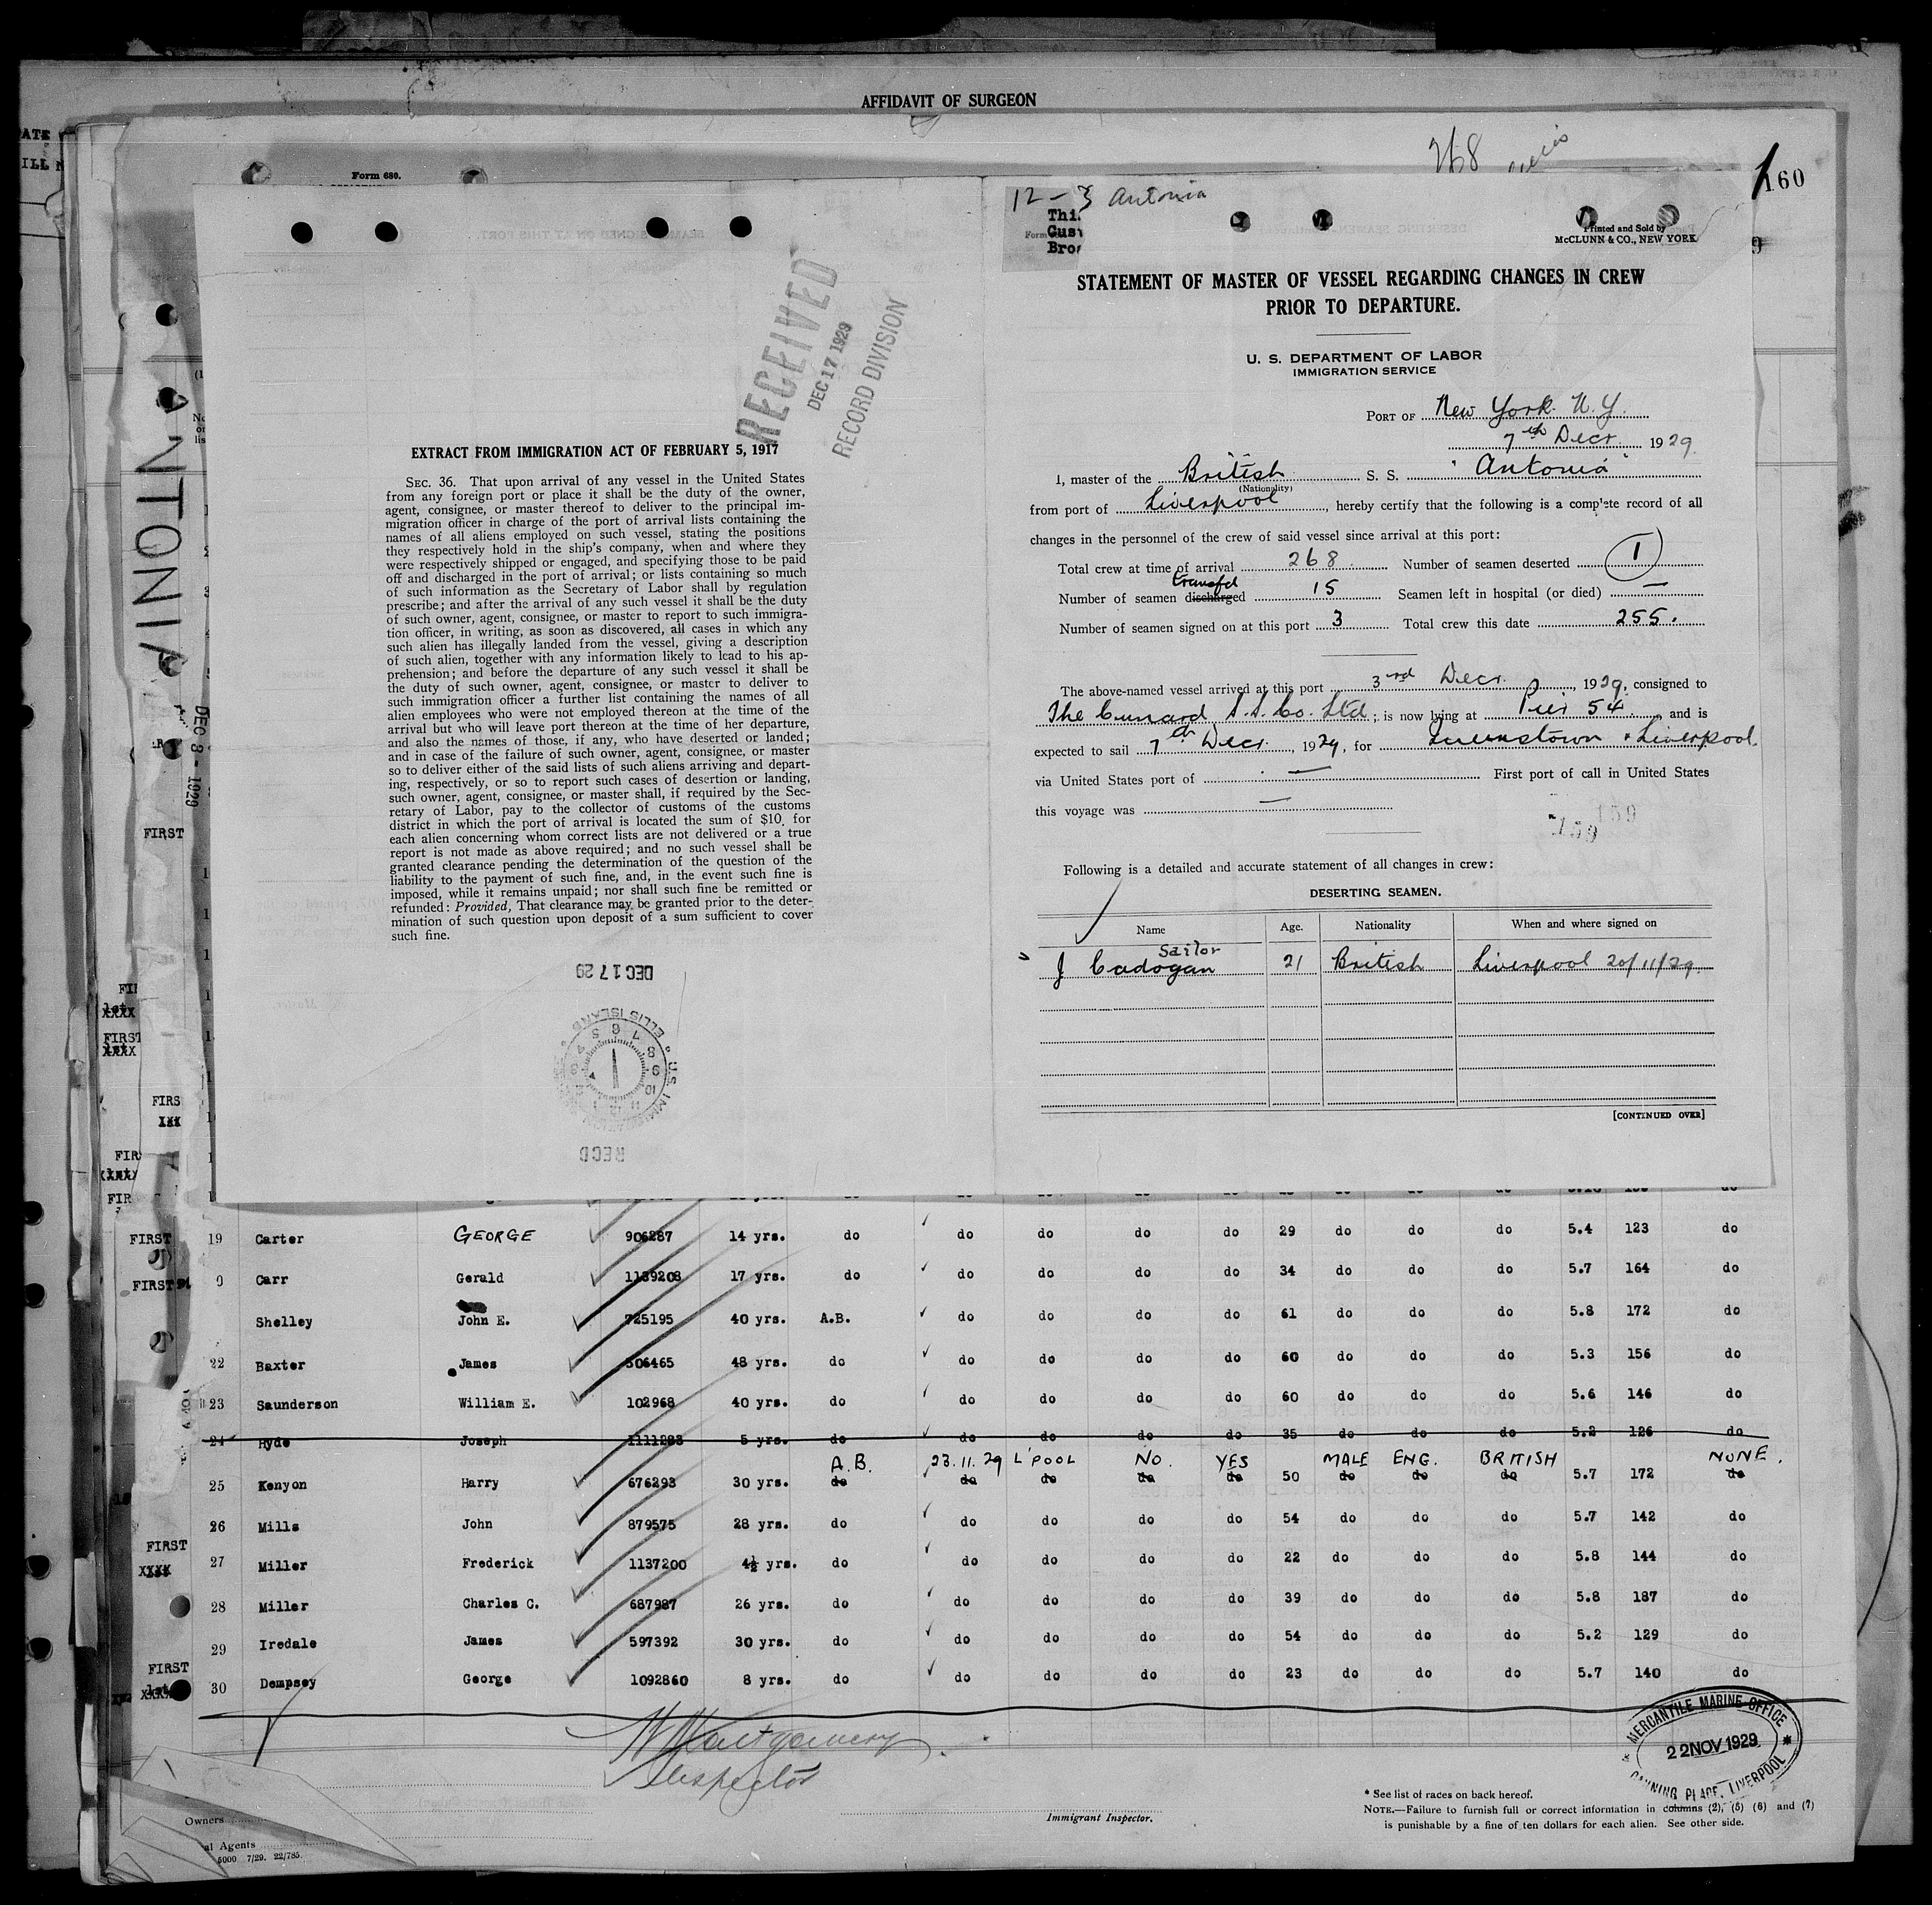 AFFIDAVIT OF SURGEON
268
160
Form 680.
12 - 3 Antonia
Printed and Sold by
McCLUNN & CO., NEW YORK
STATEMENT OF MASTER OF VESSEL REGARDING CHANGES IN CREW
PRIOR TO DEPARTURE.
U. S. DEPARTMENT OF LABOR
IMMIGRATION SERVICE
PORT OF New York. N.Y.
7th Decr. 1929.
I, master of the British S. S. "Antonia"
(Nationality)
from port of Liverpool, hereby certify that the following is a complete record of all
changes in the personnel of the crew of said vessel since arrival at this port:
Total crew at time of arrival 268. Number of seamen deserted 1
transfd
Number of seamen discharged 15 Seamen left in hospital (or died) —
Number of seamen signed on at this port 3 Total crew this date 255.
The above-named vessel arrived at this port 3rd Decr. 1929, consigned to
The Cunard S.S. Co. Ltd; is now lying at Pier 54. and is
expected to sail 7th Decr., 1929, for Queenstown & Liverpool.
via United States port of — First port of call in United States
this voyage was —
159
159
Following is a detailed and accurate statement of all changes in crew:
DESERTING SEAMEN.
Name Age. Nationality When and where signed on
Sailor
J Cadogan 21 British Liverpool 20/11/29.
[CONTINUED OVER]
RECEIVED
DEC 17 1929
RECORD DIVISION
EXTRACT FROM IMMIGRATION ACT OF FEBRUARY 5, 1917
SEC. 36. That upon arrival of any vessel in the United States
from any foreign port or place it shall be the duty of the owner,
agent, consignee, or master thereof to deliver to the principal im-
migration officer in charge of the port of arrival lists containing the
names of all aliens employed on such vessel, stating the positions
they respectively hold in the ship's company, when and where they
were respectively shipped or engaged, and specifying those to be paid
off and discharged in the port of arrival; or lists containing so much
of such information as the Secretary of Labor shall by regulation
prescribe; and after the arrival of any such vessel it shall be the duty
of such owner, agent, consignee, or master to report to such immigra-
tion officer, in writing, as soon as discovered, all cases in which any
such alien has illegally landed from the vessel, giving a description
of such alien, together with any information likely to lead to his ap-
prehension; and before the departure of any such vessel it shall be
the duty of such owner, agent, consignee, or master to deliver to
such immigration officer a further list containing the names of all
alien employees who were not employed thereon at the time of the
arrival but who will leave port thereon at the time of her departure,
and also the names of those, if any, who have deserted or landed;
and in case of the failure of such owner, agent, consignee, or master
so to deliver either of the said lists of such aliens arriving and depart-
ing, respectively, or so to report such cases of desertion or landing,
such owner, agent, consignee, or master shall, if required by the Sec-
retary of Labor, pay to the collector of customs of the customs
district in which the port of arrival is located the sum of $10 for
each alien concerning whom correct lists are not delivered or a true
report is not made as above required; and no such vessel shall be
granted clearance pending the determination of the question of the
liability to the payment of such fine, and, in the event such fine is
imposed, while it remains unpaid; nor shall such fine be remitted or
refunded: Provided, That clearance may be granted prior to the deter-
mination of such question upon deposit of a sum sufficient to cover
such fine.
DEC 17 29
ELLIS ISLAND
U.S. IMMIGRATION
REC'D
ANTONIA
DEC 3 - 1929
FIRST
FIRST 19 Carter GEORGE 906287 14 yrs. do do do do do 29 do do do 5.4 123 do
FIRST Carr Gerald 1139208 17 yrs. do do do do do 34 do do do 5.7 164 do
Shelley John E. 725195 40 yrs. A.B. do do do do 61 do do do 5.8 172 do
22 Baxter James 506465 48 yrs. do do do do do 60 do do do 5.3 156 do
23 Saunderson William E. 102968 40 yrs. do do do do do 60 do do do 5.6 146 do
24 Hyde Joseph 1111283 5 yrs. do do do do do 35 do do do 5.2 126 do
A.B. 23.11.29 L'POOL NO. YES MALE ENG. BRITISH NONE.
25 Kenyon Harry 676293 30 yrs. do do do do do 50 do do do 5.7 172 do
26 Mills John 879575 28 yrs. do do do do do 54 do do do 5.7 142 do
FIRST
27 Miller Frederick 1137200 4½ yrs. do do do do do 22 do do do 5.8 144 do
28 Miller Charles C. 687987 26 yrs. do do do do do 39 do do do 5.8 187 do
29 Iredale James 597392 30 yrs. do do do do do 54 do do do 5.2 129 do
FIRST
30 Dempsey George 1092860 8 yrs. do do do do do 23 do do do 5.7 140 do
W Montgomery
Inspector
MERCANTILE MARINE OFFICE
22 NOV 1929
CANNING PLACE, LIVERPOOL
* See list of races on back hereof.
NOTE.—Failure to furnish full or correct information in columns (2), (5) (6) and (7)
is punishable by a fine of ten dollars for each alien. See other side.
Immigrant Inspector.
Owners
al Agents
5000 7/29. 22/785